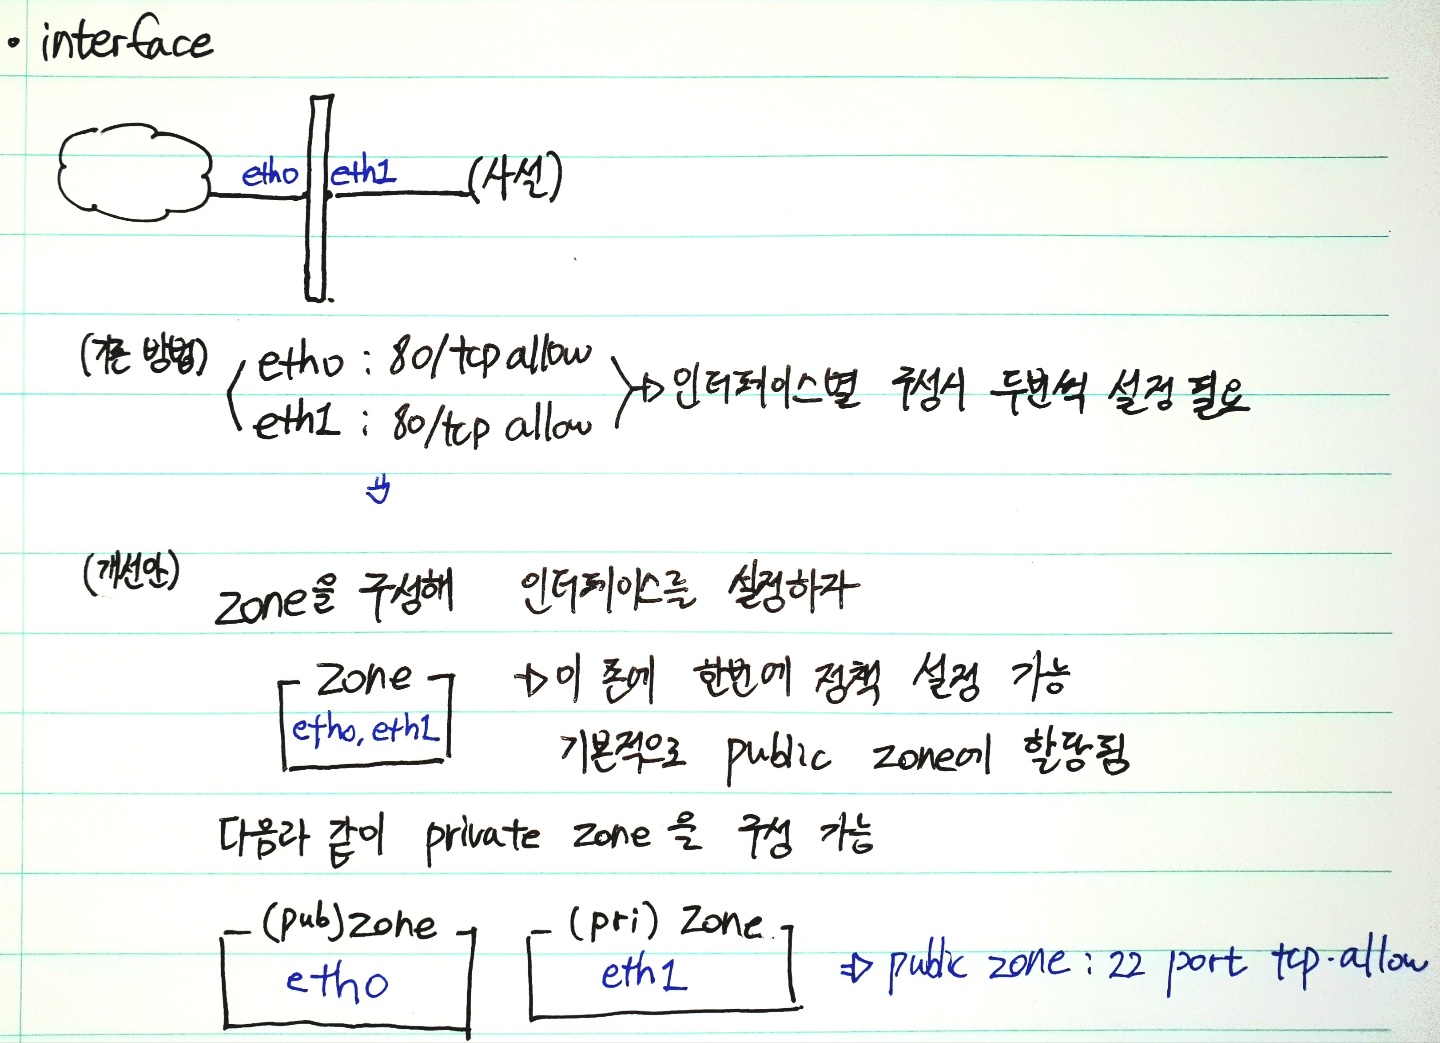 • interface
eth0 eth1 (사설)
(기존 방법) eth0 : 80/tcp allow
eth1 : 80/tcp allow ⇒ 인터페이스별 구성시 두번씩 설정 필요
⇓
(개선안)
zone을 구성해 인터페이스를 설정하자
zone ⇒ 이 존에 한번에 정책 설정 가능
eth0, eth1 기본적으로 public zone에 할당됨
다음과 같이 private zone을 구성 가능
(pub)zone (pri) zone
eth0 eth1 ⇒ public zone : 22 port tcp.allow